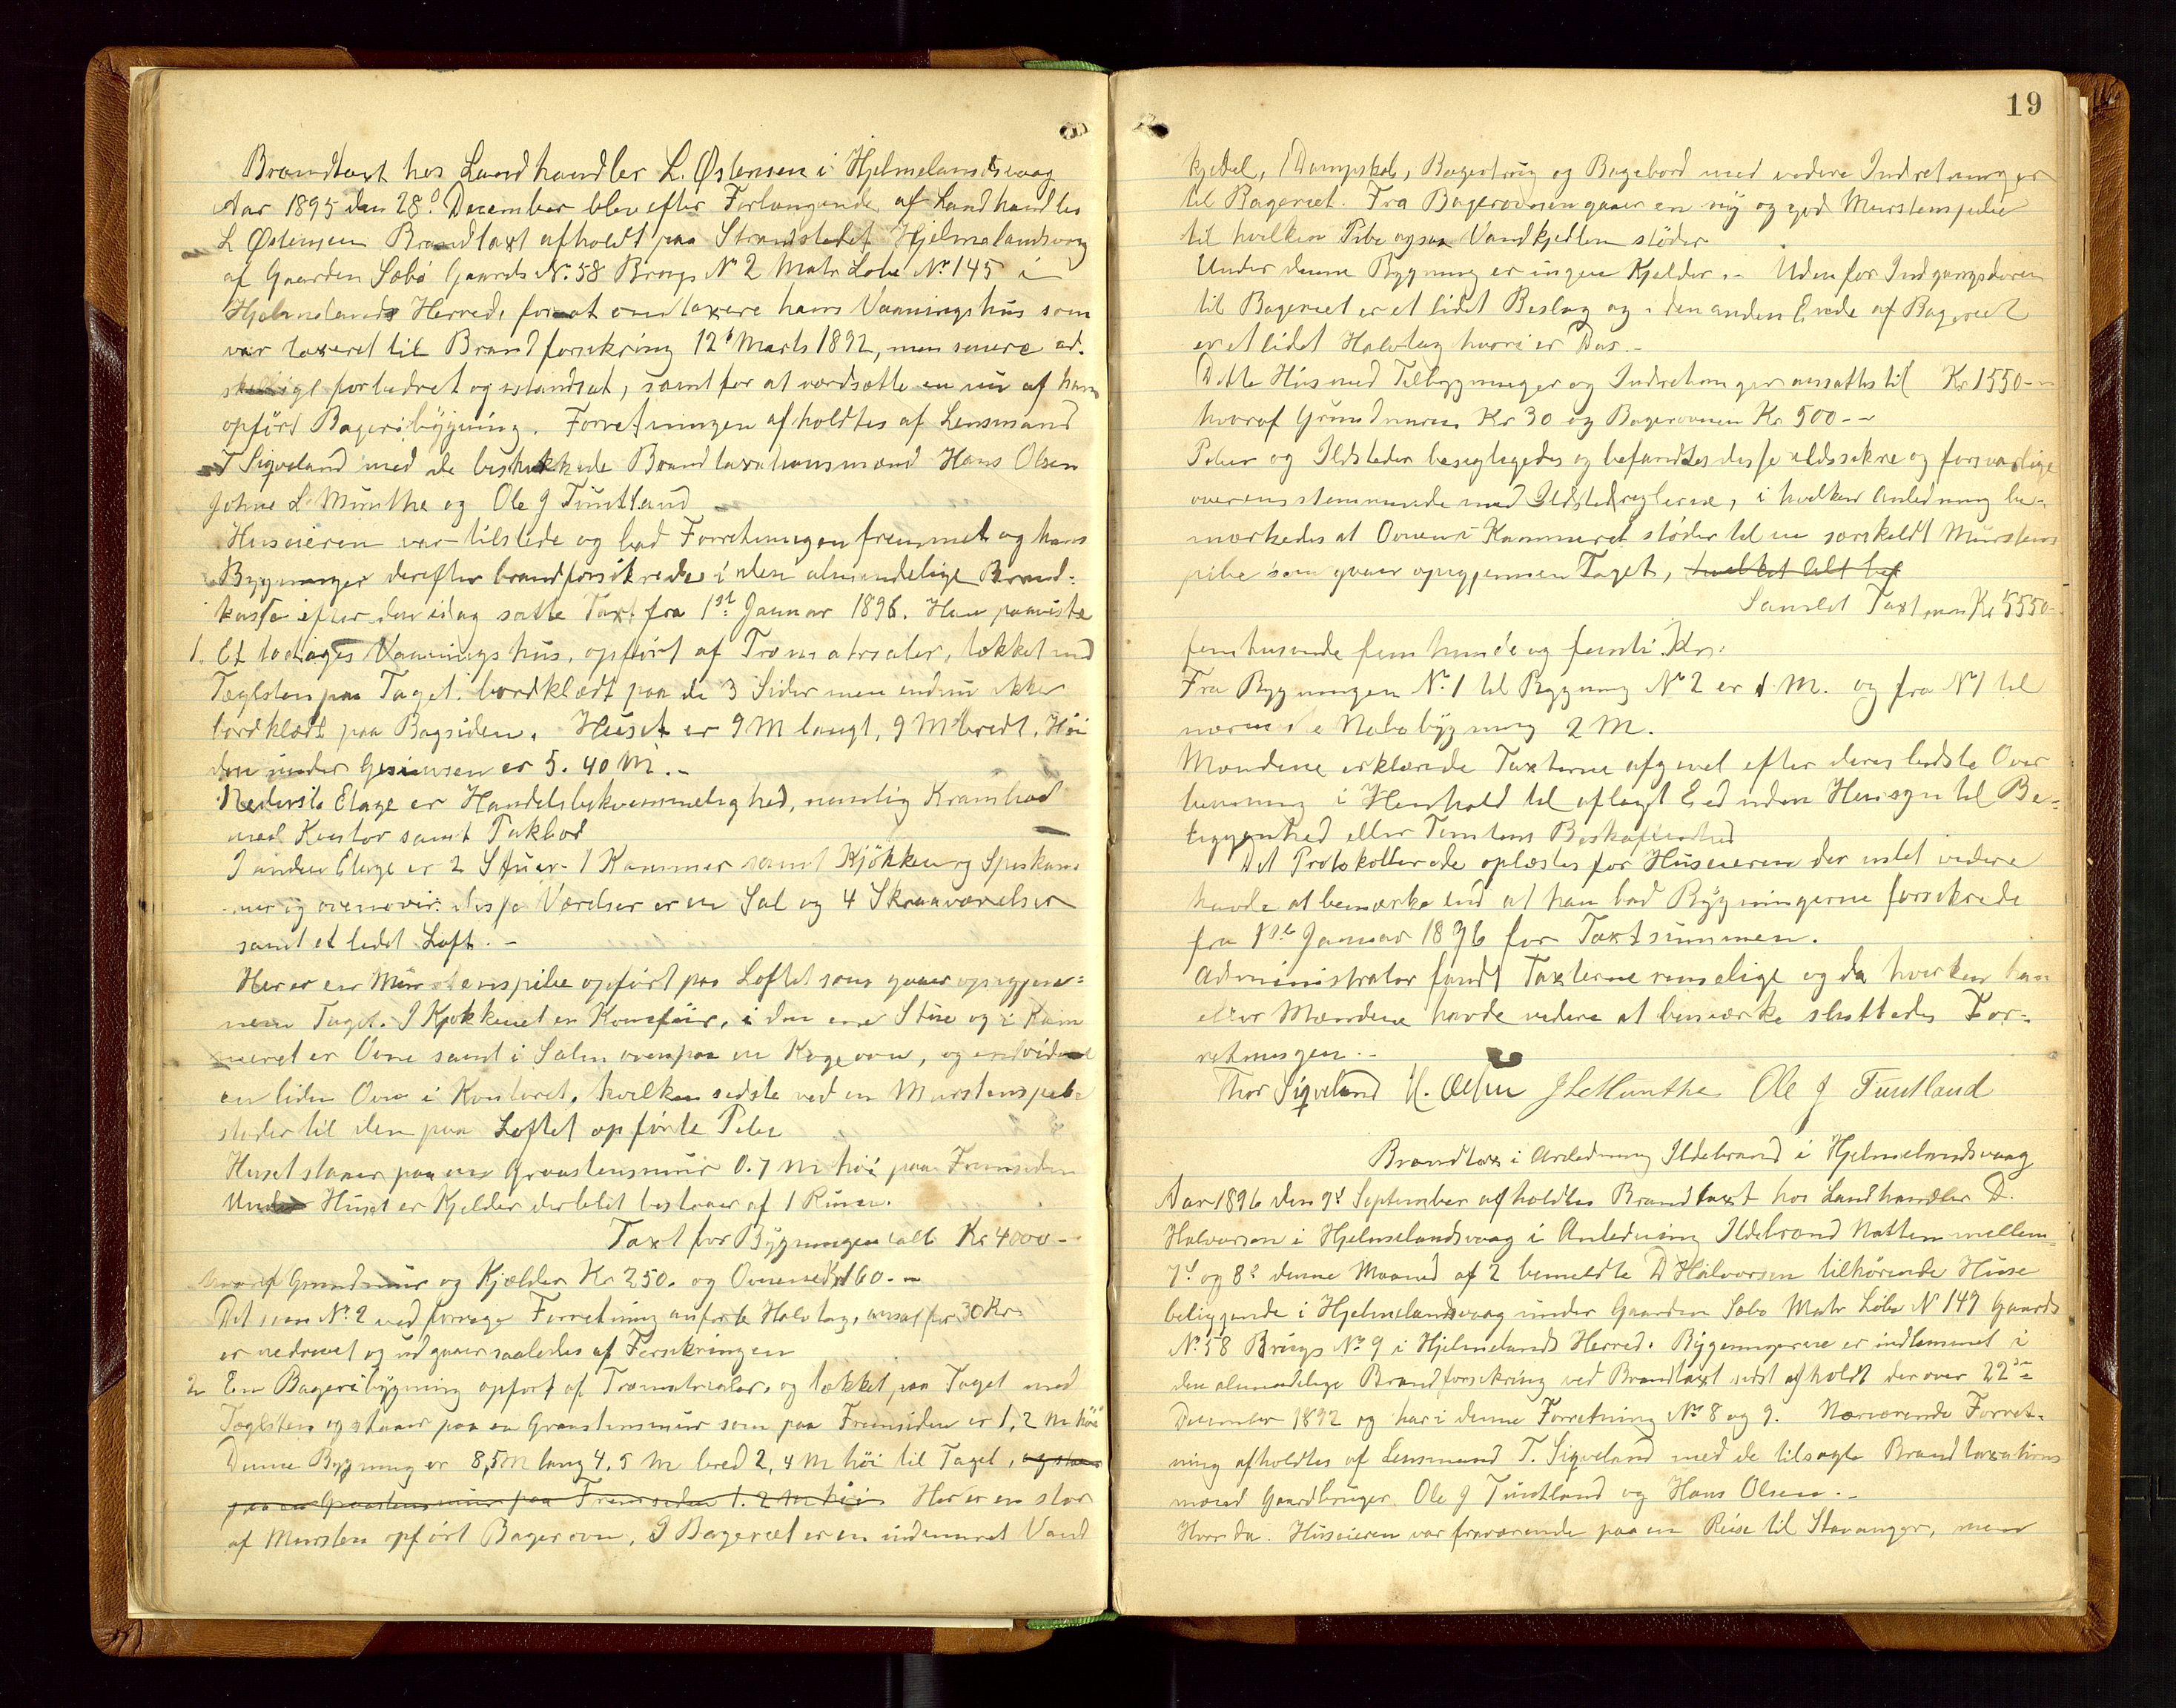 Brandtaxt hos Landhandler L. Østensen i Hjelmelandsvaag
Aar 1895 den 28d December blev efter Forlangende af Landhandler
L Østensen Brandtaxt afholdt paa Strandstedet Hjelmelandsvaag
af Gaarden Sæbø Gaards No. 58 Brugs No 2 Matr Løbe No. 145 i
Hjelmelands Herred, for at omtaxere hans Vaaningshus som
var taxeret til Brandforsikring 12t Marts 1892, men senere ad-
skilligt forbedret og istandsat, samt for at værdsætte en nu af ham
opført Bageribygning. Forretningen afholdtes af Lensmand
T Sigveland med de beskikkede Brandtaxationsmænd Hans Olsen
Johne L Munthe og Ole J Tuntland
Huseieren var tilstede og bad Forretningen fremmet og hans
Bygninger derefter brandforsikrede i den almindelige Brand-
kasse efter den idag satte Taxt fra 1st Januar 1896. Han paaviste
1. Et toetages Vaaningshus, opført af Træmaterialer, tækket med
Tæglsten paa Taget. bordklædt paa de 3 Sider men endnu ikke
bordklædt paa Bagsiden. Huset er 9 M langt, 9 M bredt. Høi
den under Gesimsen er 5.40 M. -
Nederste Etage er Handelsbekvemmelighed, nemlig Krambod
med Kontor samt Pakbod
I anden Etage er 2 Stuer - 1 Kammer samt Kjøkken og Spiskam
mer og ovenover disse Værelser er en Sal og 4 Skraaværelser
samt et lidet Loft. -
Her er en Murstenspibe opført paa Loftet som gaaer opigjen-
nem Taget. I Kjøkkenet en Komfur, i den ene Stue og i Kam
meret er Ovne samt i Salen ovenpaa en Kogeovn, og endvidere
en liden Ovn i Kontoret, hvilken sidste ved en Murstenspibe
støder til den paa Loftet opførte Pibe
Huset staaer paa en Graastensmur 0.7 M høi paa Fremsiden
Under Huset er Kjelder der blot bestaaer af 1 Rum.
Taxt for Bygningen ialt Kr 4000 -
hvoraf Grundmur og Kjælder Kr 250. og Ovnene Kr 160. -
Det som No. 2 ved forrige Forretning anførte Halvtag, ansat for 30 Kr
er nedrevet og udgaaer saaledes af Forsikringen
2 En Bageribygning opført af Træmaterialer, og tækket paa Taget med
Tæglsten og staaer paa en Graastensmur som paa Fremsiden er 1,2 M høi
Denne Bygning er 8,5 M lang 4.5 M bred 2,4 M høi til Taget, og staaer
paa en Graastensmur paa Fremsiden 1.2 M høi Her er en stor
af Mursten opført Bagerovn. I Bageriet er en indemuret Vand
19
kjedel, 1 Dampskab, Bagertrug og Bagebord med videre Indretninger
til Bageriet. Fra Bagerovnen gaaer en ny og god Murstenspibe
til hvilken Pibe ogsaa Vandkjedlen støder
Under denne Bygning er ingen Kjelder. - Udenfor Indgangsdøren
til Bageriet er et lidet Beslag og i den anden Ende af Bageriet
er et lidet Halvtag hvori er Das. -
Dette Hus med Tilbygninger og Indretninger ansattes til Kr 1550 - -
hvoraf Grundmuren Kr 30 og Bagerovnen Kr 500 - -
Piber og Ildsteder besigtigedes og befandtes disse ildssikre og forsvarlige
overensstemmende med Ildstedreglerne, i hvilken Anledning be-
mærkedes at Ovnen i Kammeret støder til en særskildt Murstens
pibe som gaaer opigjennem Taget, hvilket blt bef
Samlet Taxtsum Kr 5550 -
femtusende femhunde og femti Kr.
Fra Bygningen No. 1 til Bygning No 2 er 1 M. og fra No 1 til
nærmeste Nabobygning 2 M.
Mændene erklærede Taxterne afgivet efter deres bedste Over
bevisning i Henhold til aflagt Ed uden Hensyn til Be-
liggenhed eller Tomtens Beskaffenhed
Det Protokollerede oplæstes for Huseieren der intet videre
havde at bemærke end at han bad Bygningerne forsikrede
fra 1ste Januar 1896 for Taxtsummen.
Administrator fandt Taxterne rimelige og da hverken han
eller Mændene havde videre at bemærke sluttedes For-
retningen. -
Thor Sigveland H. Olsen J L Munthe Ole J Tuntland
Brandtaxt i Anledning Ildebrand i Hjelmelandsvaag
Aar 1896 den 9d September afholdtes Brandtaxt hos Landhandler D.
Halvorsen i Hjelmelandsvaag i Anledning Ildebrand Natten mellem
7d og 8d denne Maaned af 2 bemeldte D Halvorsen tilhørende Huse
beliggende i Hjelmelandsvaag under Gaarden Sæbø Matr Løbe N 149 Gaards
No. 58 Brugs No 9 i Hjelmelands Herred. Bygningerne er indlemmet i
den almindelige Brandforsikring ved Brandtaxt sidst afholdt derover 22de
December 1892 og har i denne Forretning No 8 og 9. Nærværende Forret-
ning afholdtes af Lensmand T. Sigveland med de tilsagte Brandtaxations
mænd Gaardbruger Ole J Tuntland og Hans Olsen. -
Hvor da. Huseieren var fraværende paa en Reise til Stavanger, men